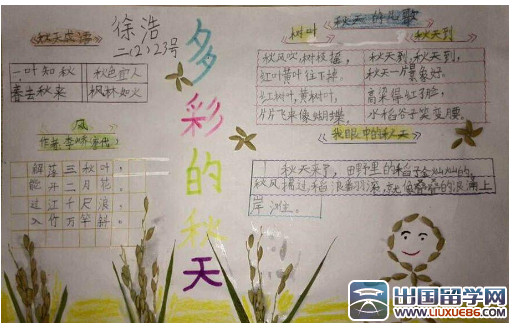 秋天成语
徐浩
二(2)23号
一叶知秋 秋色宜人
春去秋来 枫林如火
风
作者:李峤(唐代)
解落三秋叶,
能开二月花。
过江千尺浪,
入竹万竿斜。
多彩的秋天
秋天的儿歌
树叶
秋风吹,树枝摇,
红叶黄叶往下掉。
红树叶,黄树叶,
片片飞来像蝴蝶。
秋天到
秋天到,秋天到,
秋天一片景象好,
高粱得红了脸,
水稻谷子笑弯腰。
我眼中的秋天
秋天来了,田野里的稻子金灿灿的,
秋风拂过,稻浪翻滚,就像
的浪涌上
岸
出国留学网
WWW.LIUXUE86.COM